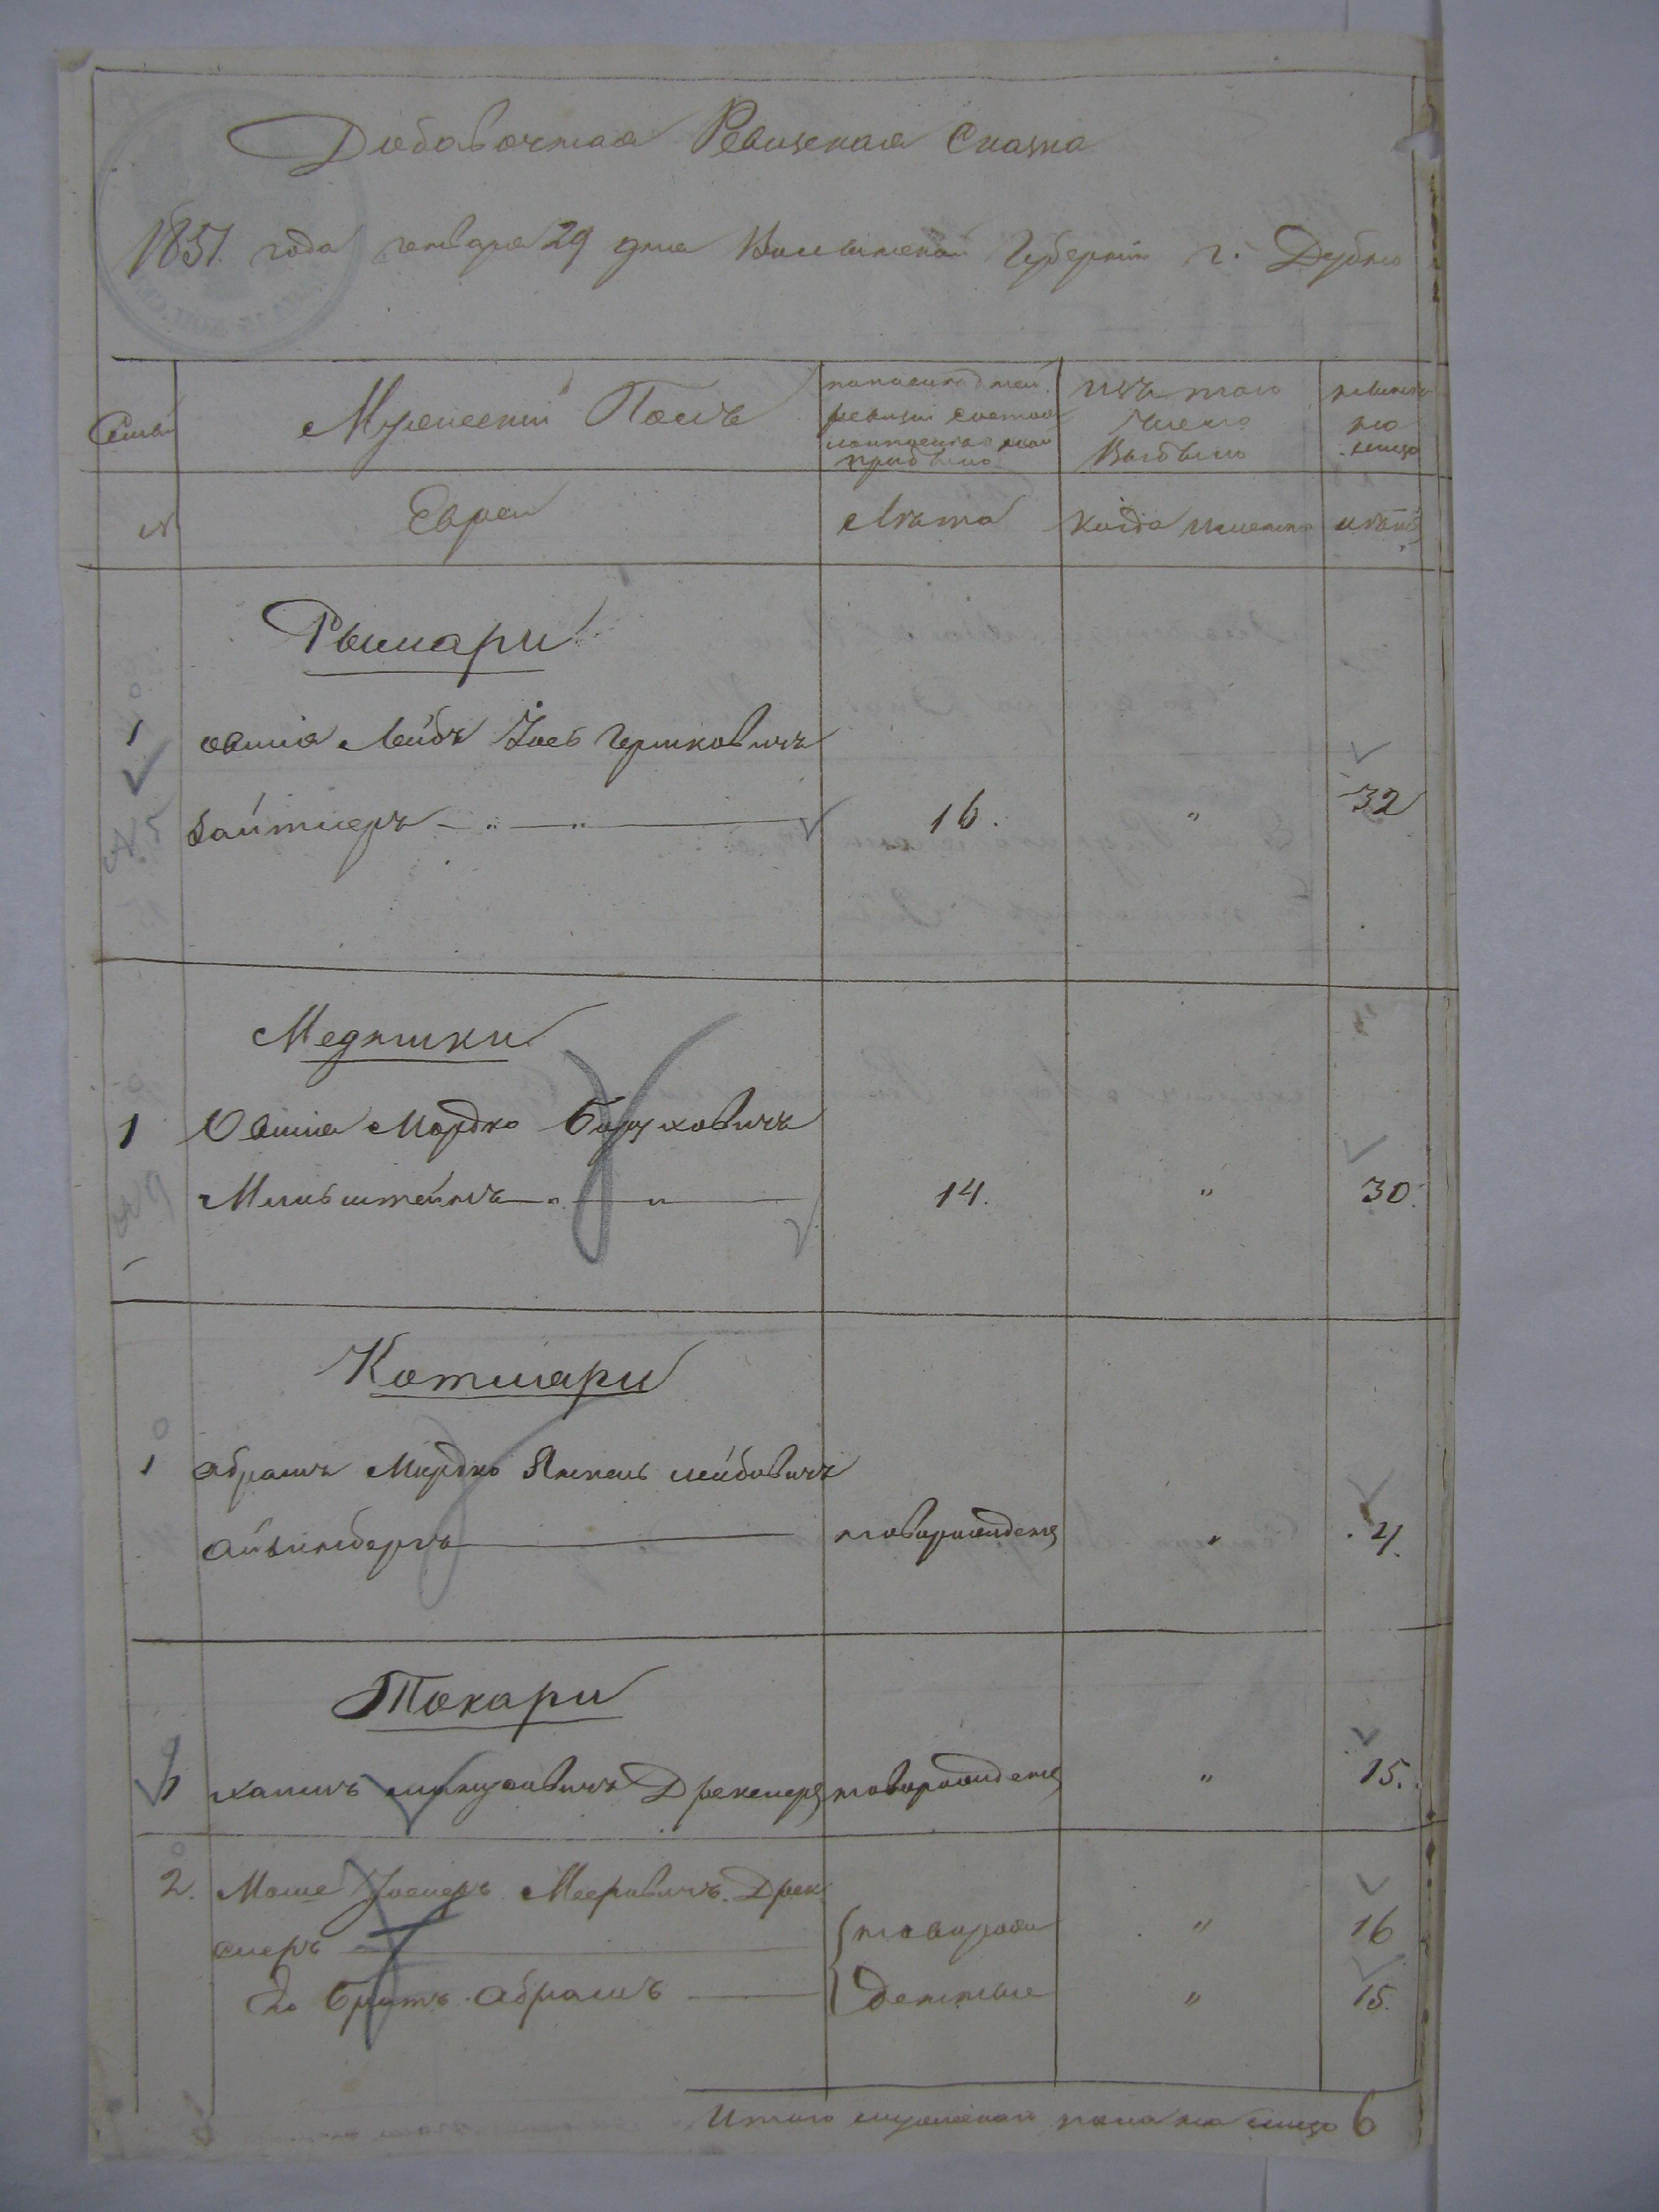 Добавочная Ревизская Сказка
1851. года генваря 29 дня Волынской Губернии г. Дубно
Семьи
Мужеский Полъ
ревизии состояло
прибыло
изъ того
числа
выбыло
на
лицо
№
Евреи
Лѣта
Когда именно
лѣта
Рымари
1 Овшія Лейбъ Іосъ Гершковичъ
Зайтлеръ 16. " 32
№ 5
Медники
1 Овшія Мордко Боруховичъ
Мильштейнъ 14. " 30.
№ 9
Котляри
1 Абрамъ Мордко Янкель Лейбовичъ
Айзенбергъ новорожденъ " 4.
Токари
1 Хаимъ Дрекслеръ новорожденъ " 15.
2. Моше Мееровичъ Дрек
слеръ новорож " 16
Его братъ Абрамъ денные " 15.
Итого мужескаго пола на лицо 6